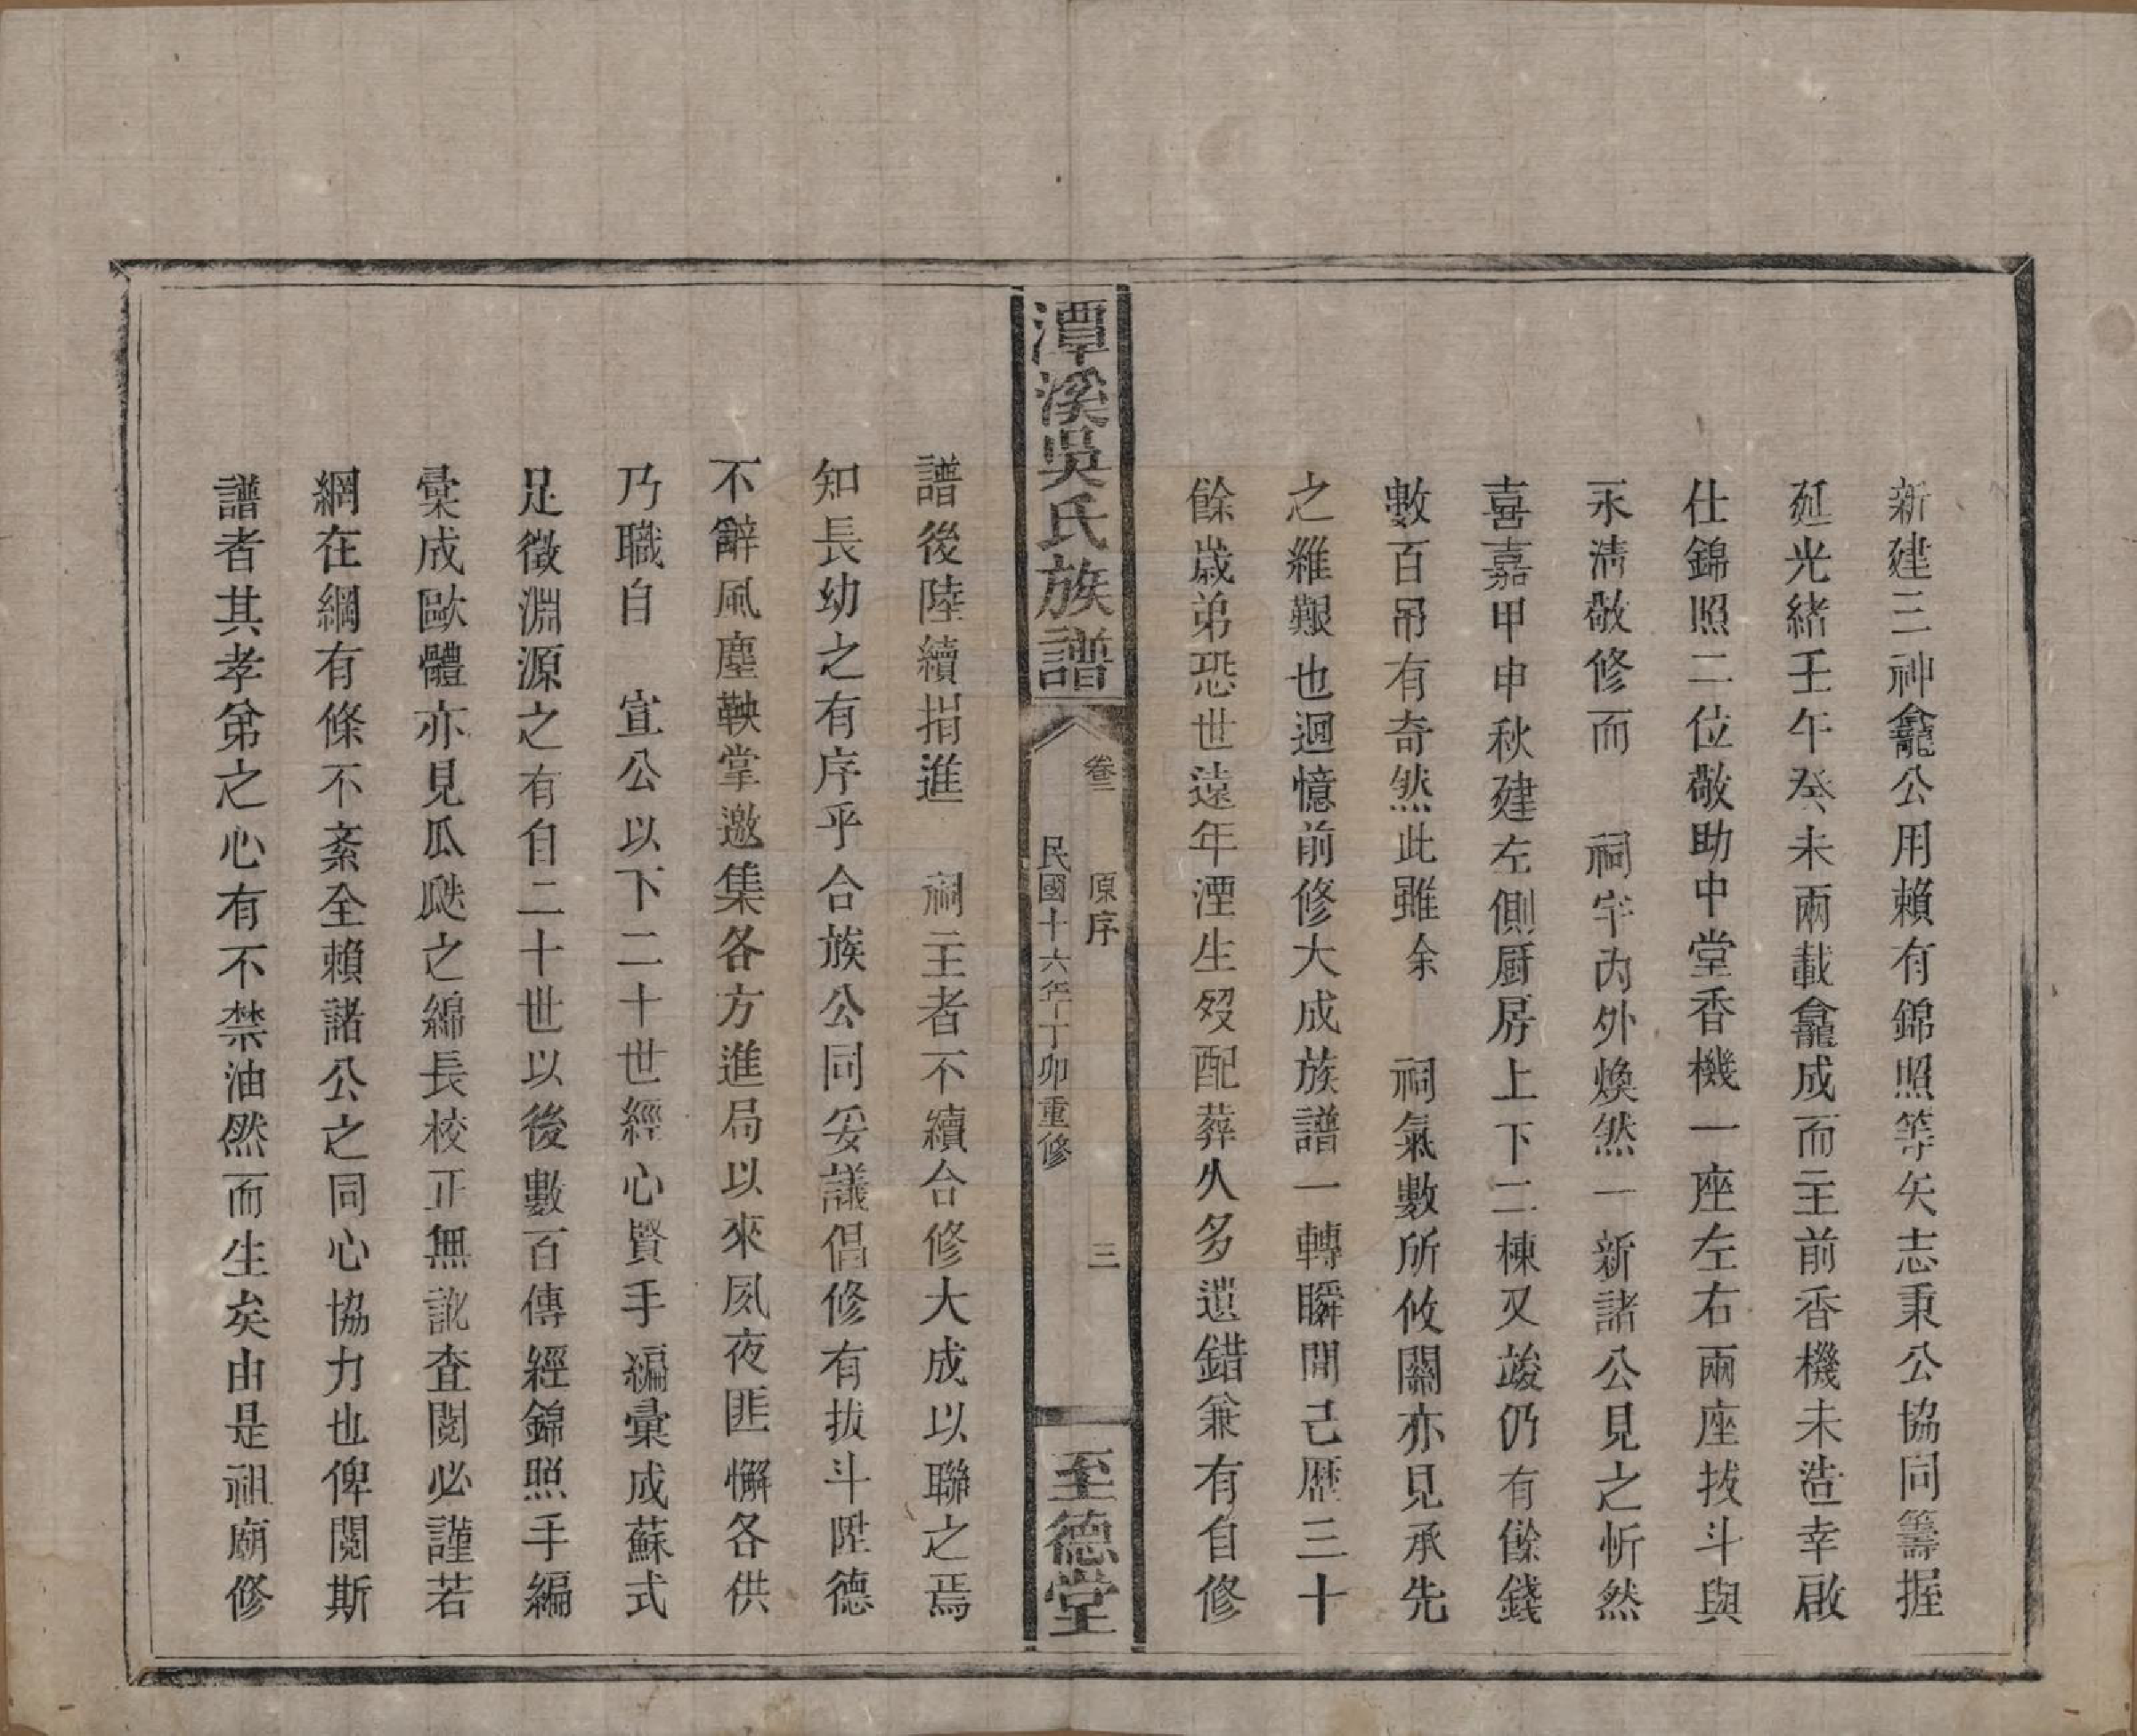 新建三神龕公用賴有錦照等矢志秉公協同籌握
延光緒壬午癸未兩載龕成而主前香機未造幸啟
仕錦照二位敬助中堂香機一座左右兩座拔斗與
永清敬修而　祠宇內外煥然一新諸公見之忻然
喜嘉甲申秋建左側厨房上下二棟又竣仍有餘錢
數百吊有奇然此雖余　祠氣數所攸關亦見承先
之維艱也迴憶前修大成族譜一轉瞬間己歷三十
餘歲弟恐世遠年湮生歿配葬火多遺錯兼有自修
潭溪吳氏族譜
卷三　原序　三
民國十六年丁卯重修
至德堂
譜後陸續捐進　祠主者不續合修大成以聯之焉
知長幼之有序乎合族公同妥議倡修有拔斗陞德
不辭風塵鞅掌邀集各方進局以來夙夜匪懈各供
乃職自　宣公以下二十世經心賢手編彙成蘇式
足徵淵源之有自二十世以後數百傳經錦照手編
彙成歐體亦見瓜瓞之綿長校正無訛查閱必謹若
網在綱有條不紊全賴諸公之同心協力也俾閱斯
譜者其孝弟之心有不禁油然而生矣由是祖廟修